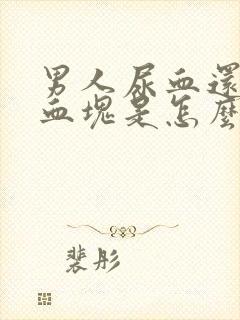 男人尿血還
血塊是怎麼
裴彤